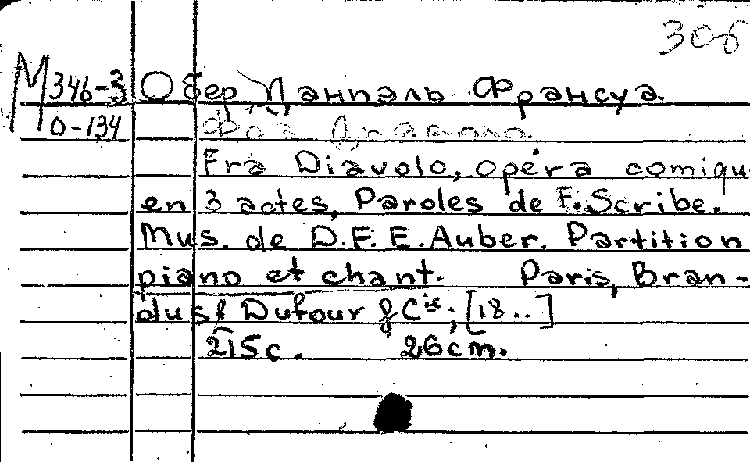 306
М 346-3 Обер, Даниэль Франсуа.
О-134 Фра Диаволо
Fra Diavolo, opéra comiqu
en 3 actes, Paroles de E. Scribe.
Mus. de D.F.E. Auber. Partition
piano et chant. Paris, Bran-
dus & Dufour & Cie, [18..]
215 с. 26 cm.